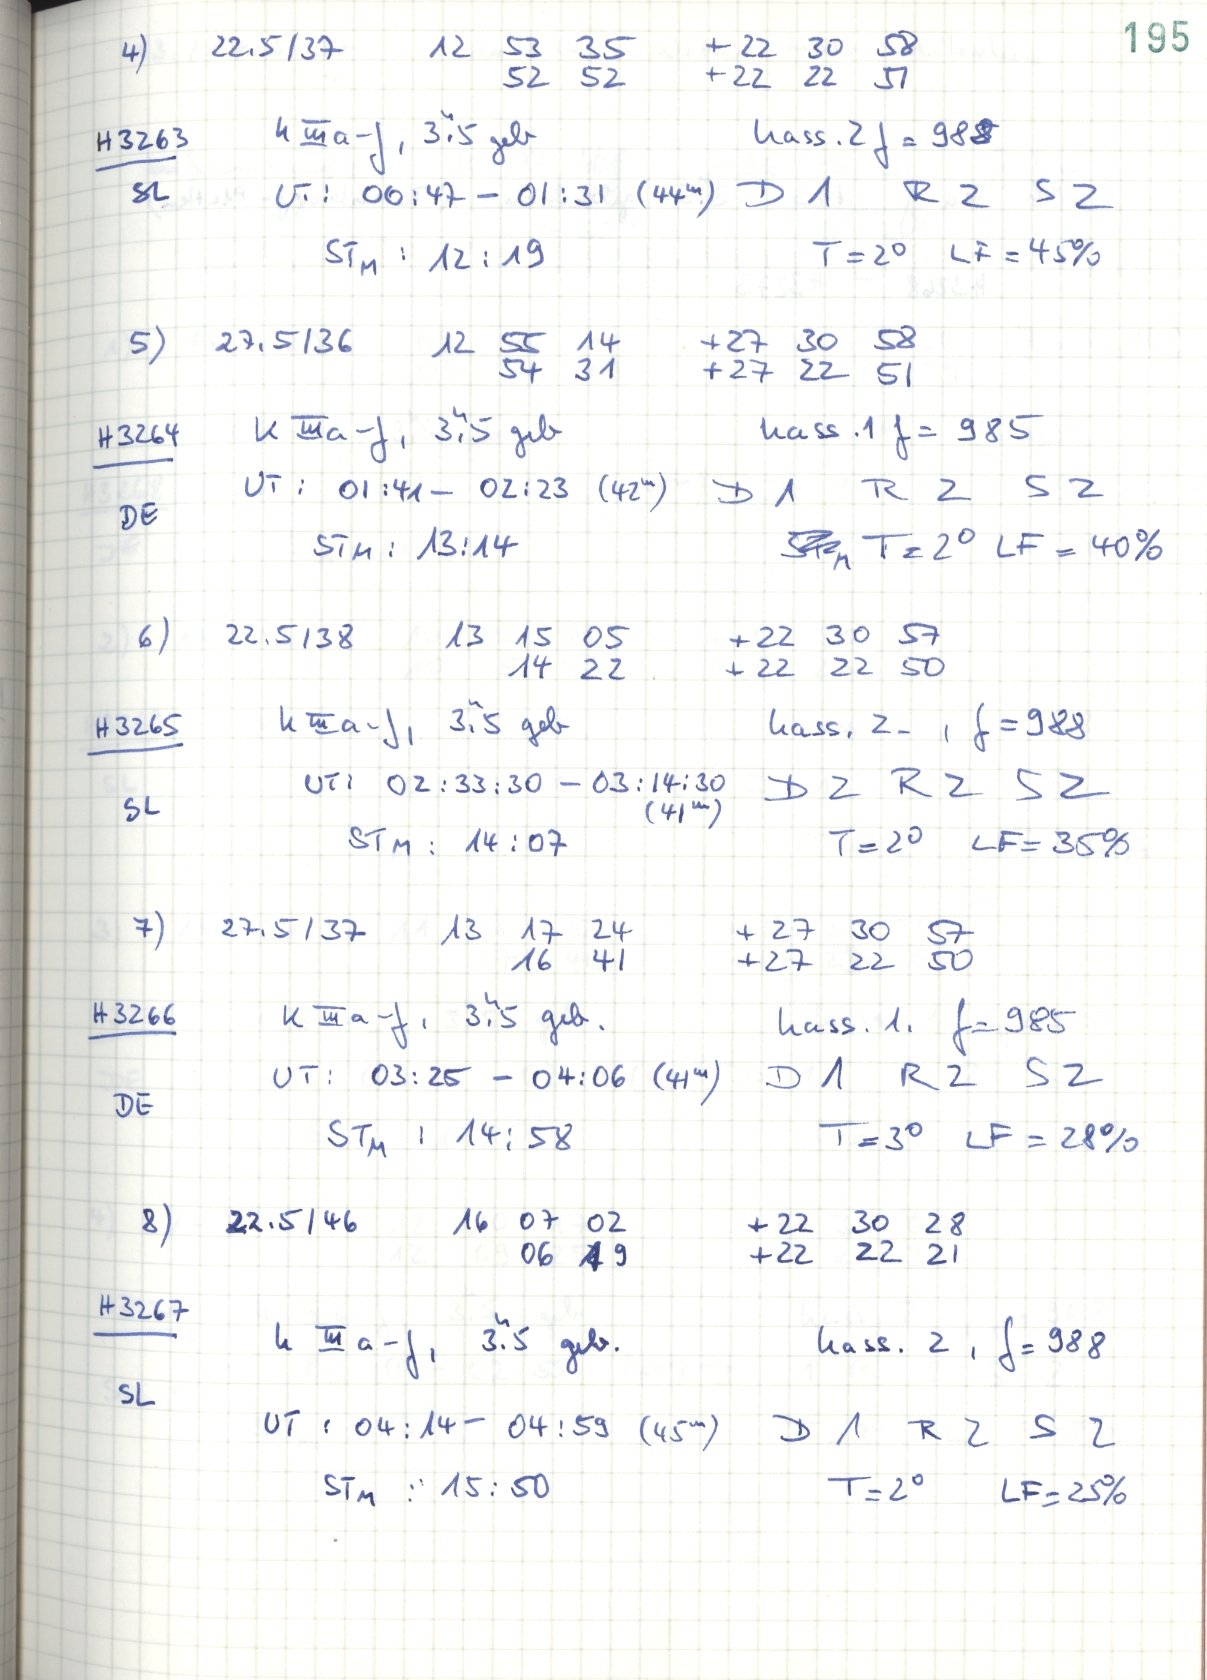 195
4) 22.5/37 12 53 35 +22 30 58
52 52 +22 22 51
H3263 K III a-f, 3.5 geb Kass. 2 f = 988
SL UT: 00:47 - 01:31 (44m) D 1 R 2 S 2
STM : 12:19 T = 2° LF = 45%
5) 27.5/36 12 55 14 +27 30 58
54 31 +27 22 51
H3264 K III a-f, 3.5 geb Kass. 1 f = 985
UT: 01:41 - 02:23 (42m) D 1 R 2 S 2
DE
STM : 13:14 T = 2° LF = 40%
6) 22.5/38 13 15 05 +22 30 57
14 22 +22 22 50
H3265 K III a-f, 3.5 geb Kass. 2 - , f = 988
UT: 02:33:30 - 03:14:30 D 2 R 2 S 2
SL (41m)
STM : 14:07 T = 2° LF = 35%
7) 27.5/37 13 17 24 +27 30 57
16 41 +27 22 50
H3266 K III a-f, 3.5 geb. Kass. 1. f = 985
UT: 03:25 - 04:06 (41m) D 1 R 2 S 2
DE
STM : 14:58 T = 3° LF = 28%
8) 22.5/46 16 07 02 +22 30 28
06 19 +22 22 21
H3267
K III a-f, 3.5 geb. Kass. 2, f = 988
SL
UT : 04:14 - 04:59 (45m) D 1 R 2 S 2
STM : 15:50 T = 2° LF = 25%